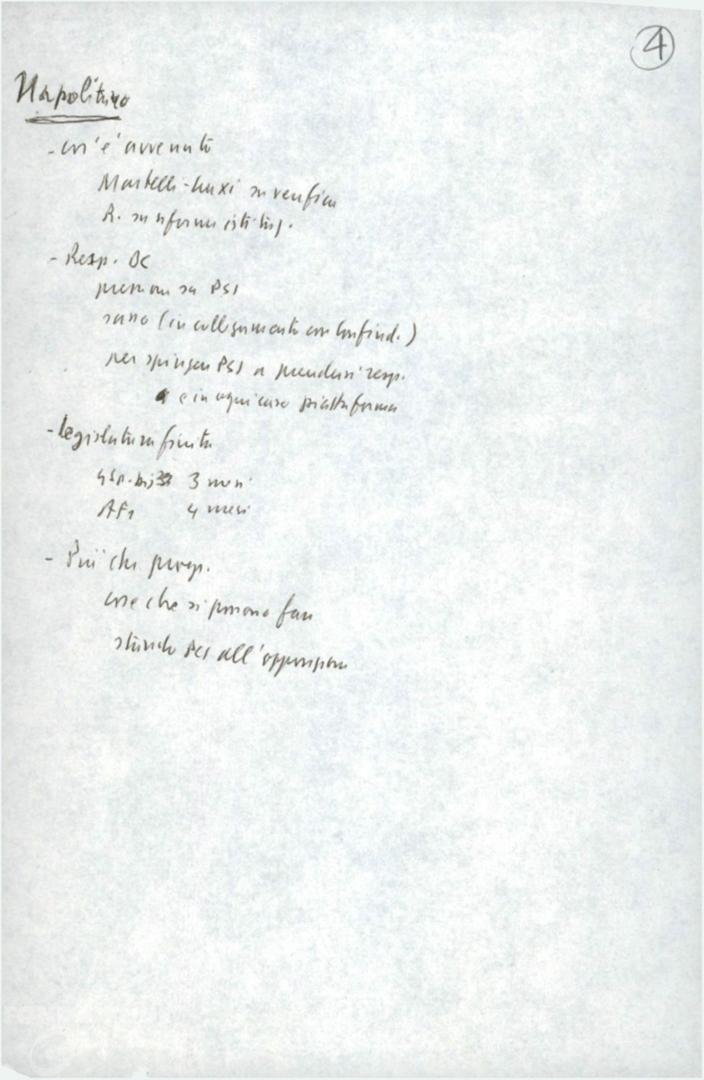 4
Napolitano
- cos'è avvenuto
Martelli-Craxi su verifica
R. su riforme istituz.
- Resp. DC
pressioni su PSI
sono (in collegamento con Confind.)
per spingere PSI a prendersi resp.
e in ogni caso piattaforma
- legislatura finita
3 mesi
4 mesi
- Più che prosp.
cose che si possono fare
stando PCI all'opposizione